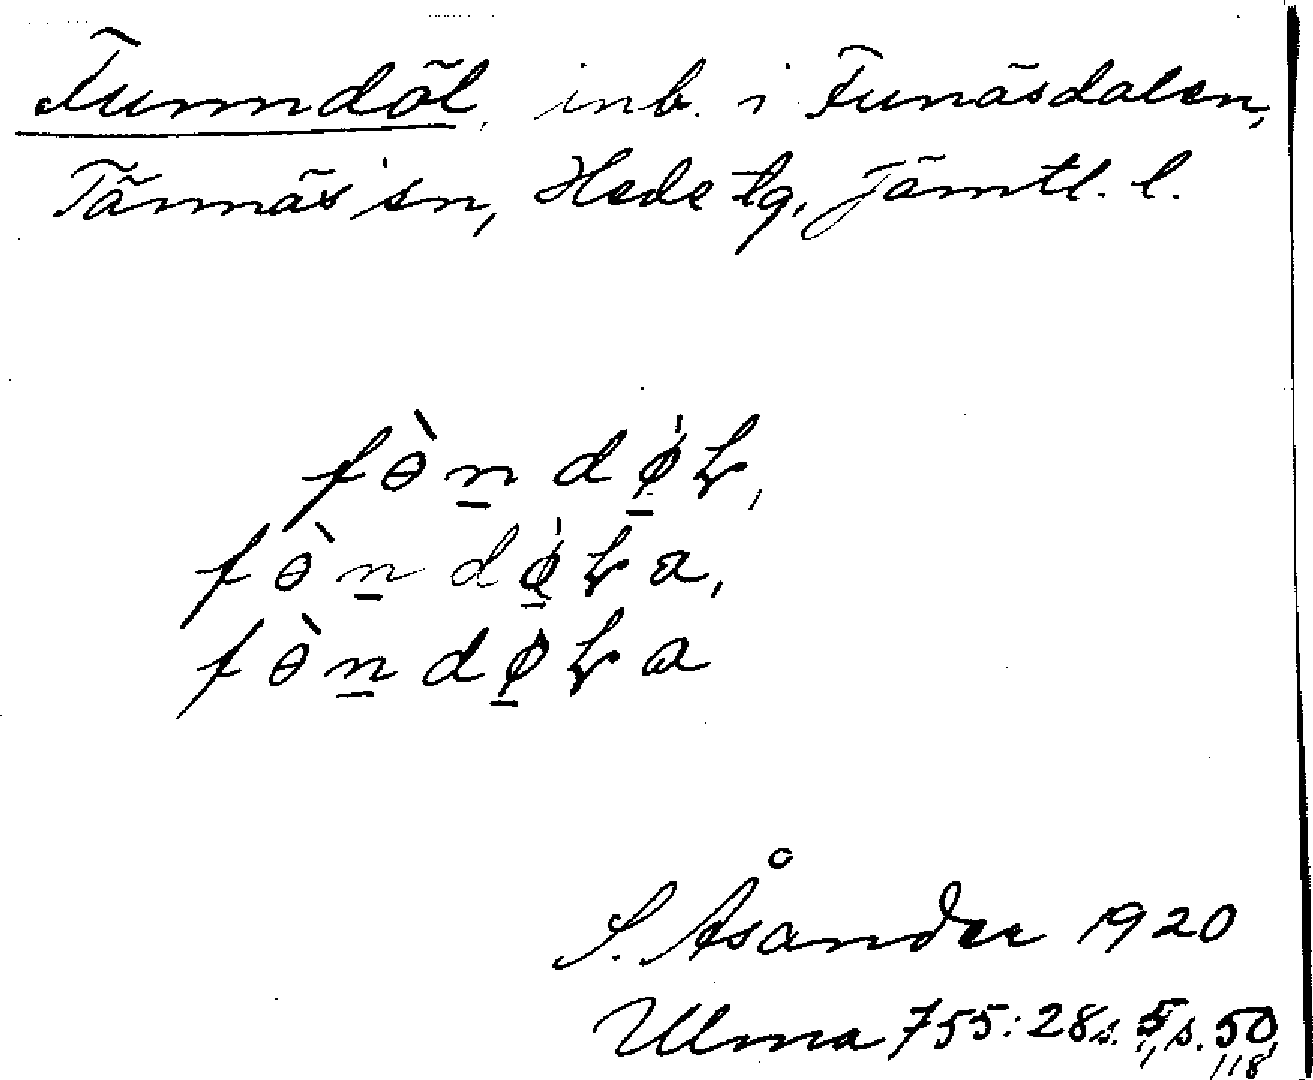 Funndöl, inb. i Funäsdalen,
Tännäs sn, Hede tg, Jämtl. l.
fɵ̀n̲ dø̲̍ɽ,
fɵ̀n̲ dø̲̍ɽ a,
fɵ̀n̲ dø̲̍ɽ a
S. Åsander 1920
Ulma 755:28 s. 5, s. 50,
118